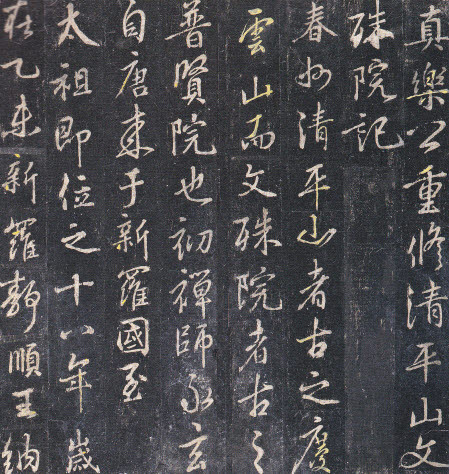 真樂公重修清平山文
殊院記
春州清平山者古之慶
雲山而文殊院者古之
普賢院也初禪師永玄
自唐來于新羅國至
太祖即位之十八年歲
在乙未新羅靜順王納